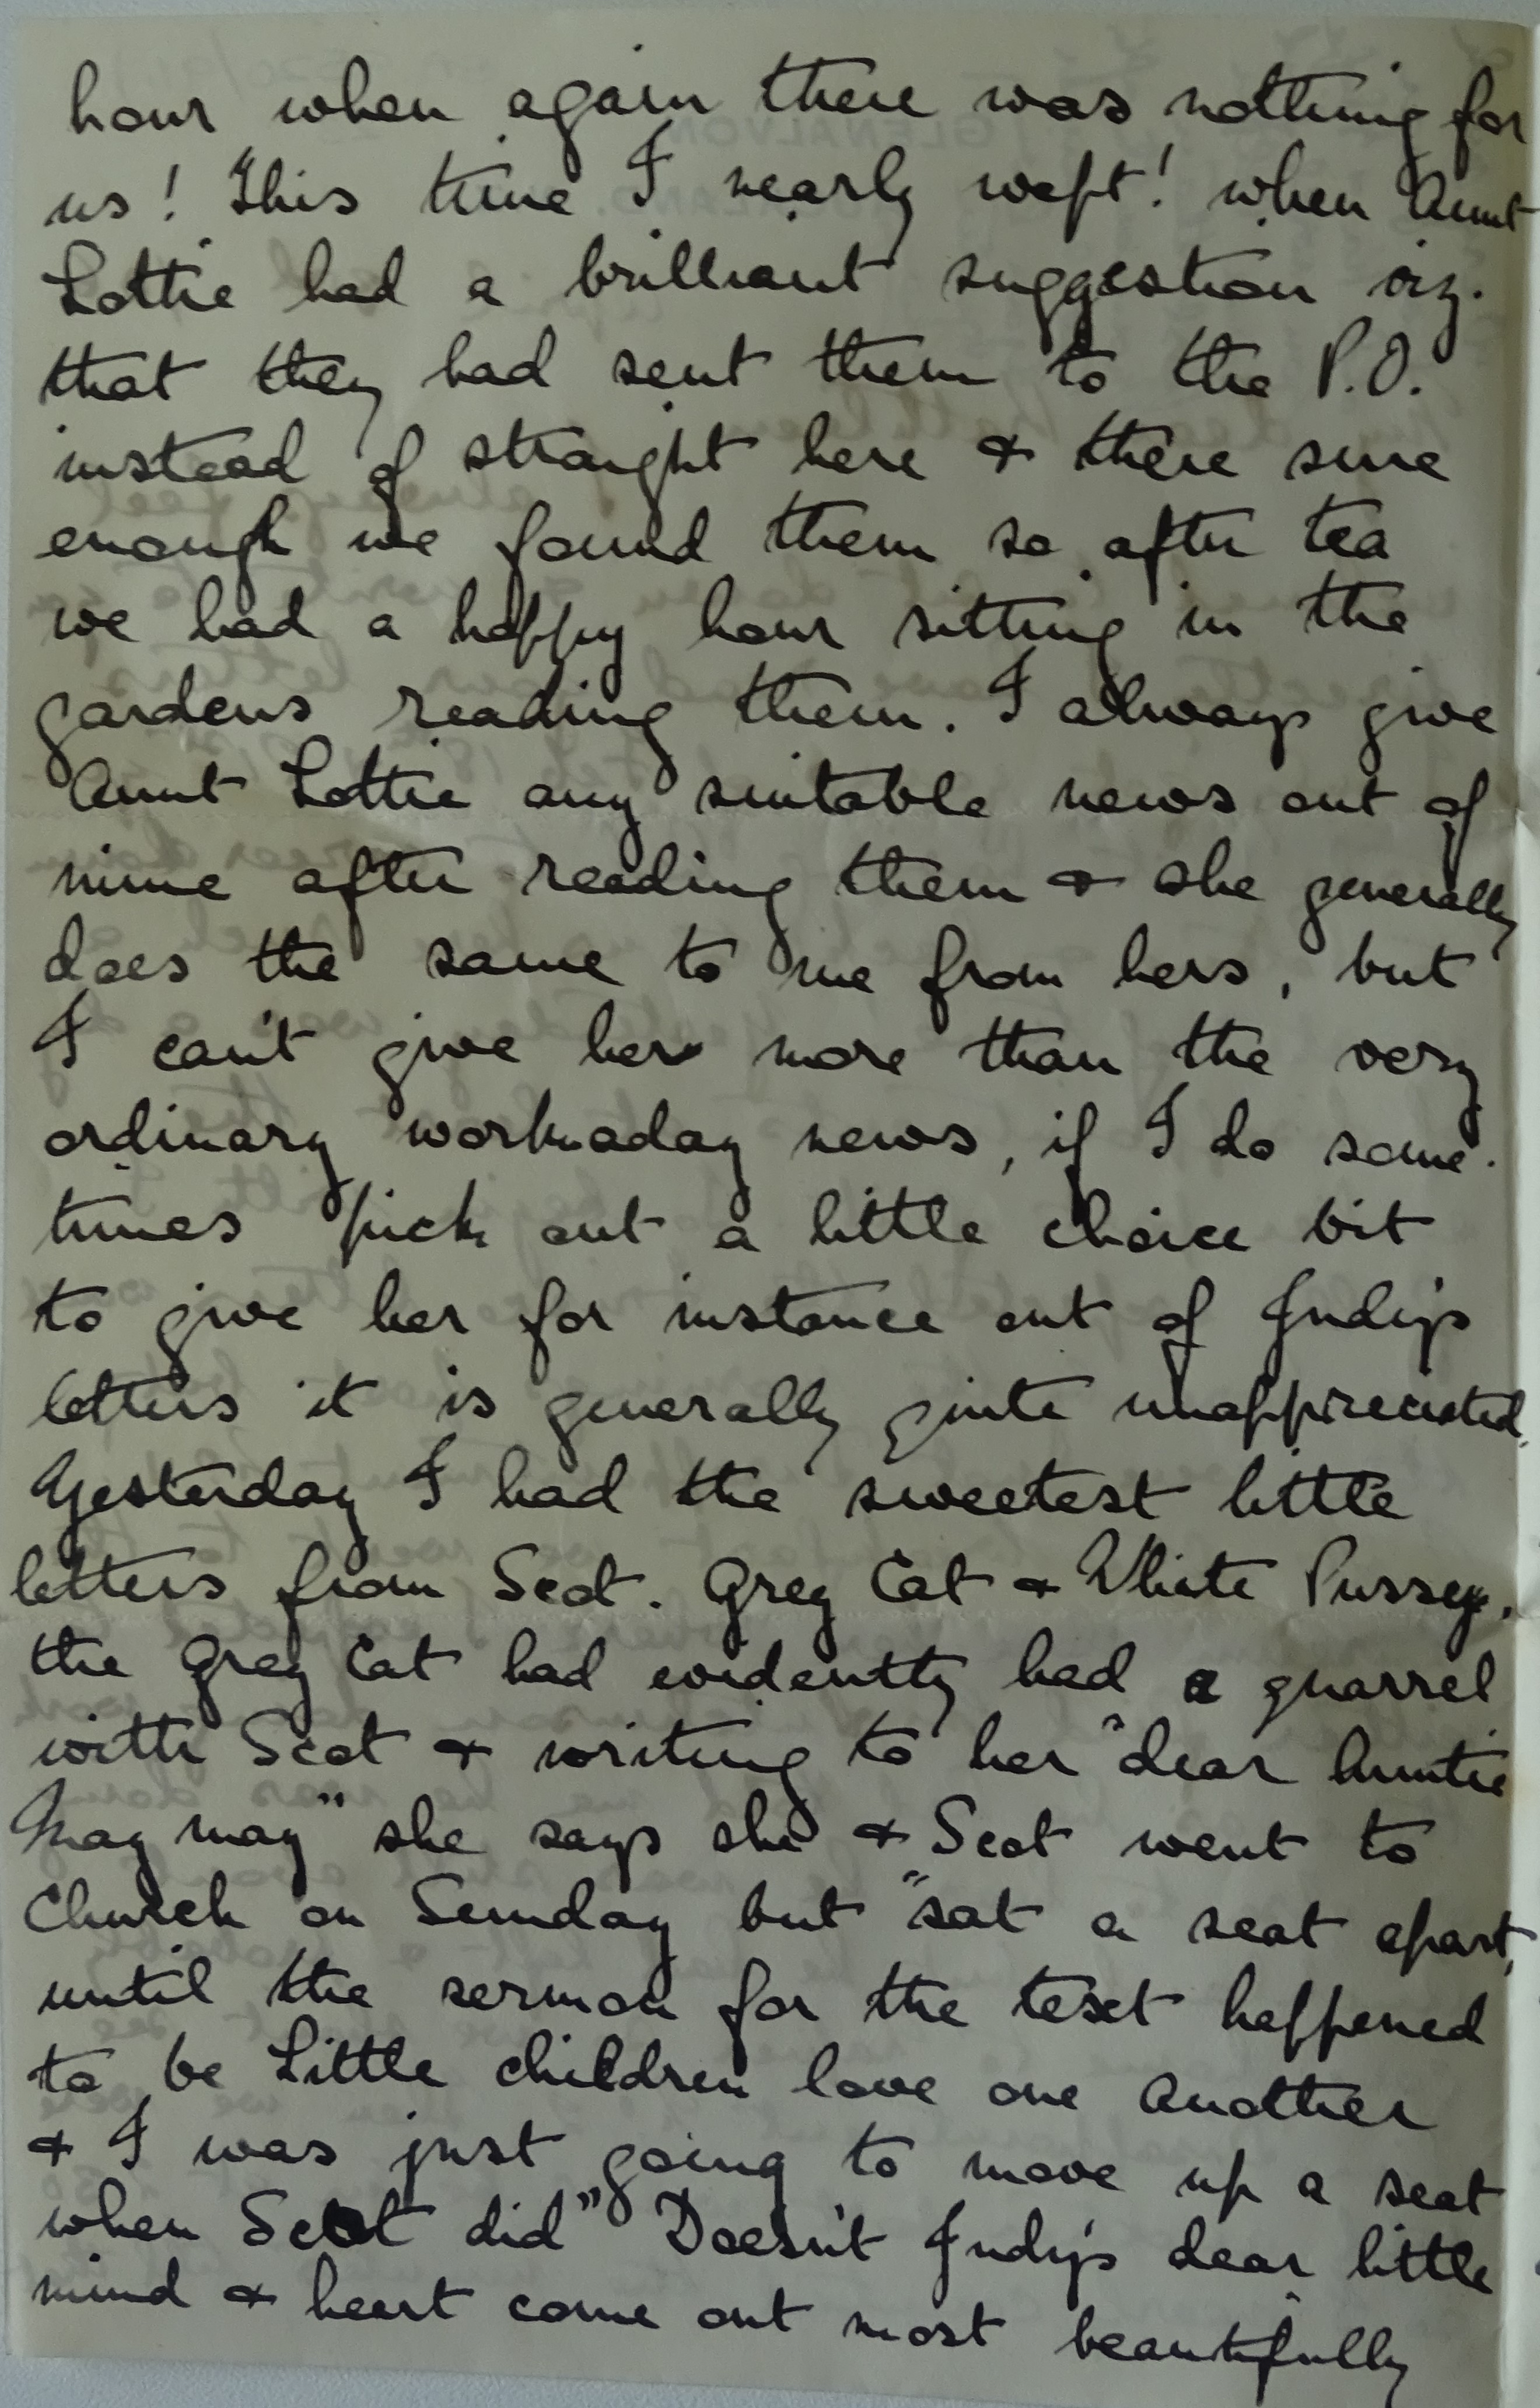 hour when again there was nothing for
us! This time I nearly wept! when Aunt
Lottie had a brilliant suggestion viz.
that they had sent them to the P.O.
instead of straight here & there sure
enough we found them so after tea
we had a happy hour sitting in the
gardens reading them. I always give
Aunt Lottie any suitable news out of
mine after reading them & she generally
does the same to me from hers, but
I can't give her more than the very
ordinary workaday news, if I do some-
times pick out a little choice bit
to give her for instance out of Judy's
letters it is generally quite unappreciated.
Yesterday I had the sweetest little
letters from Scot. Grey Cat & White Pussey,
the Grey Cat had evidently had a quarrel
with Scot & writing to her "dear Auntie
May may" she says she & Scot went to
Church on Sunday but "sat a seat apart,
until the sermon for the text happened
to be Little children love one another
& I was just going to move up a seat
when Scot did" Doesn't Judy's dear little
mind & heart come out most beautifully